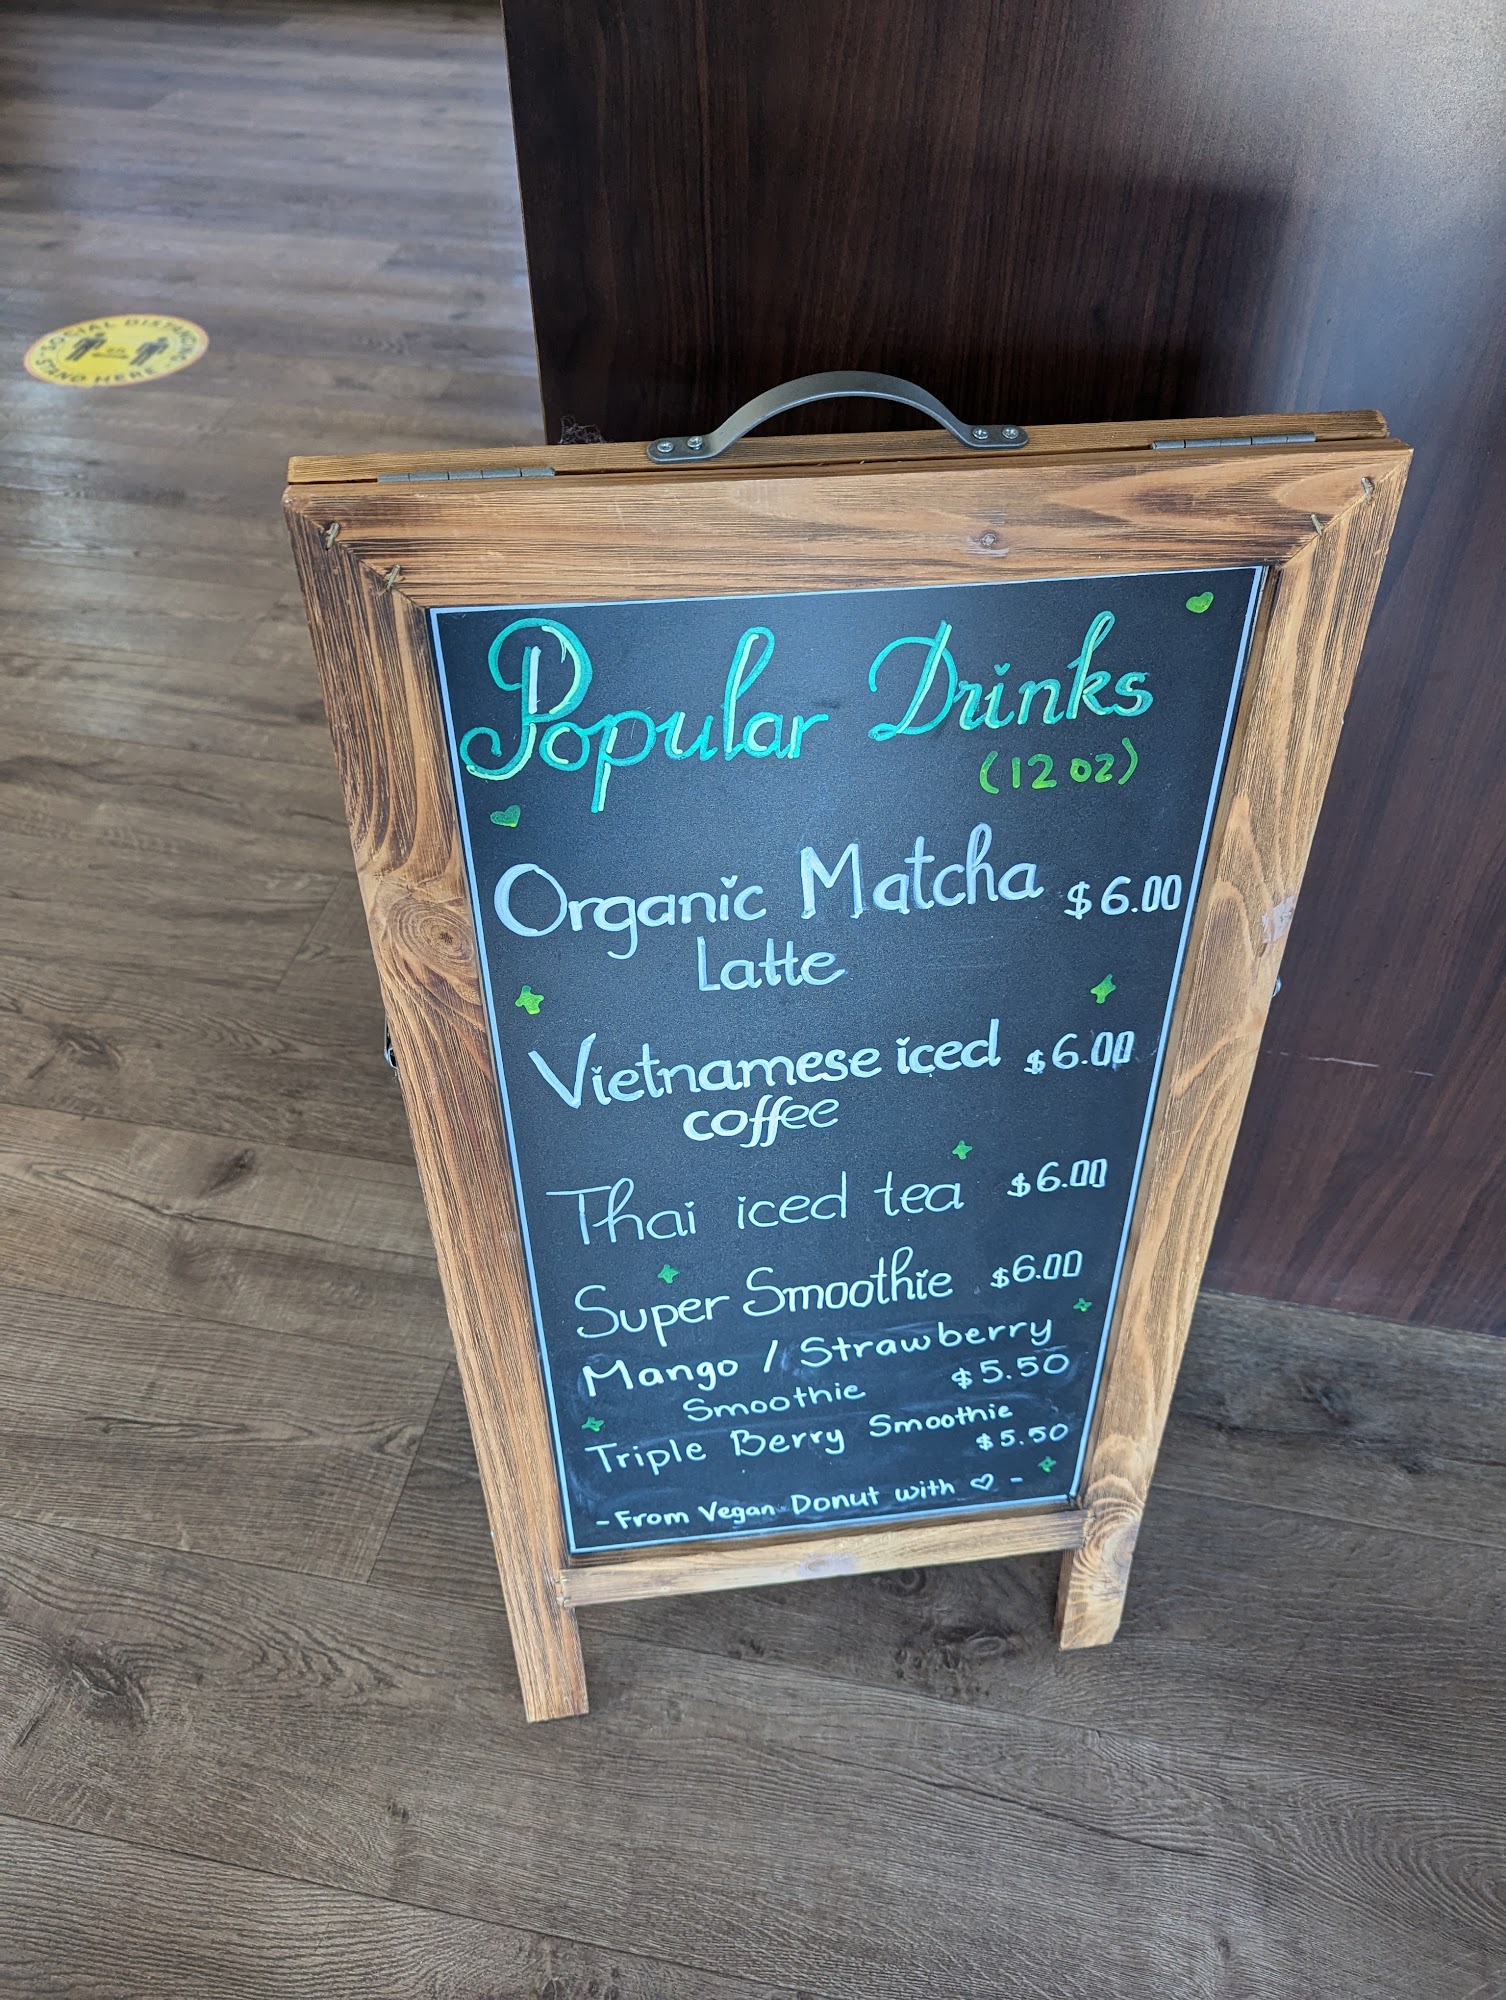 SOCIAL DISTANCING
STAND HERE
Popular Drinks
(12 oz)
Organic Matcha $6.00
Latte
Vietnamese iced $6.00
coffee
Thai iced tea $6.00
Super Smoothie $6.00
Mango / Strawberry
Smoothie $5.50
Triple Berry Smoothie
$5.50
- From Vegan Donut with ♡ -